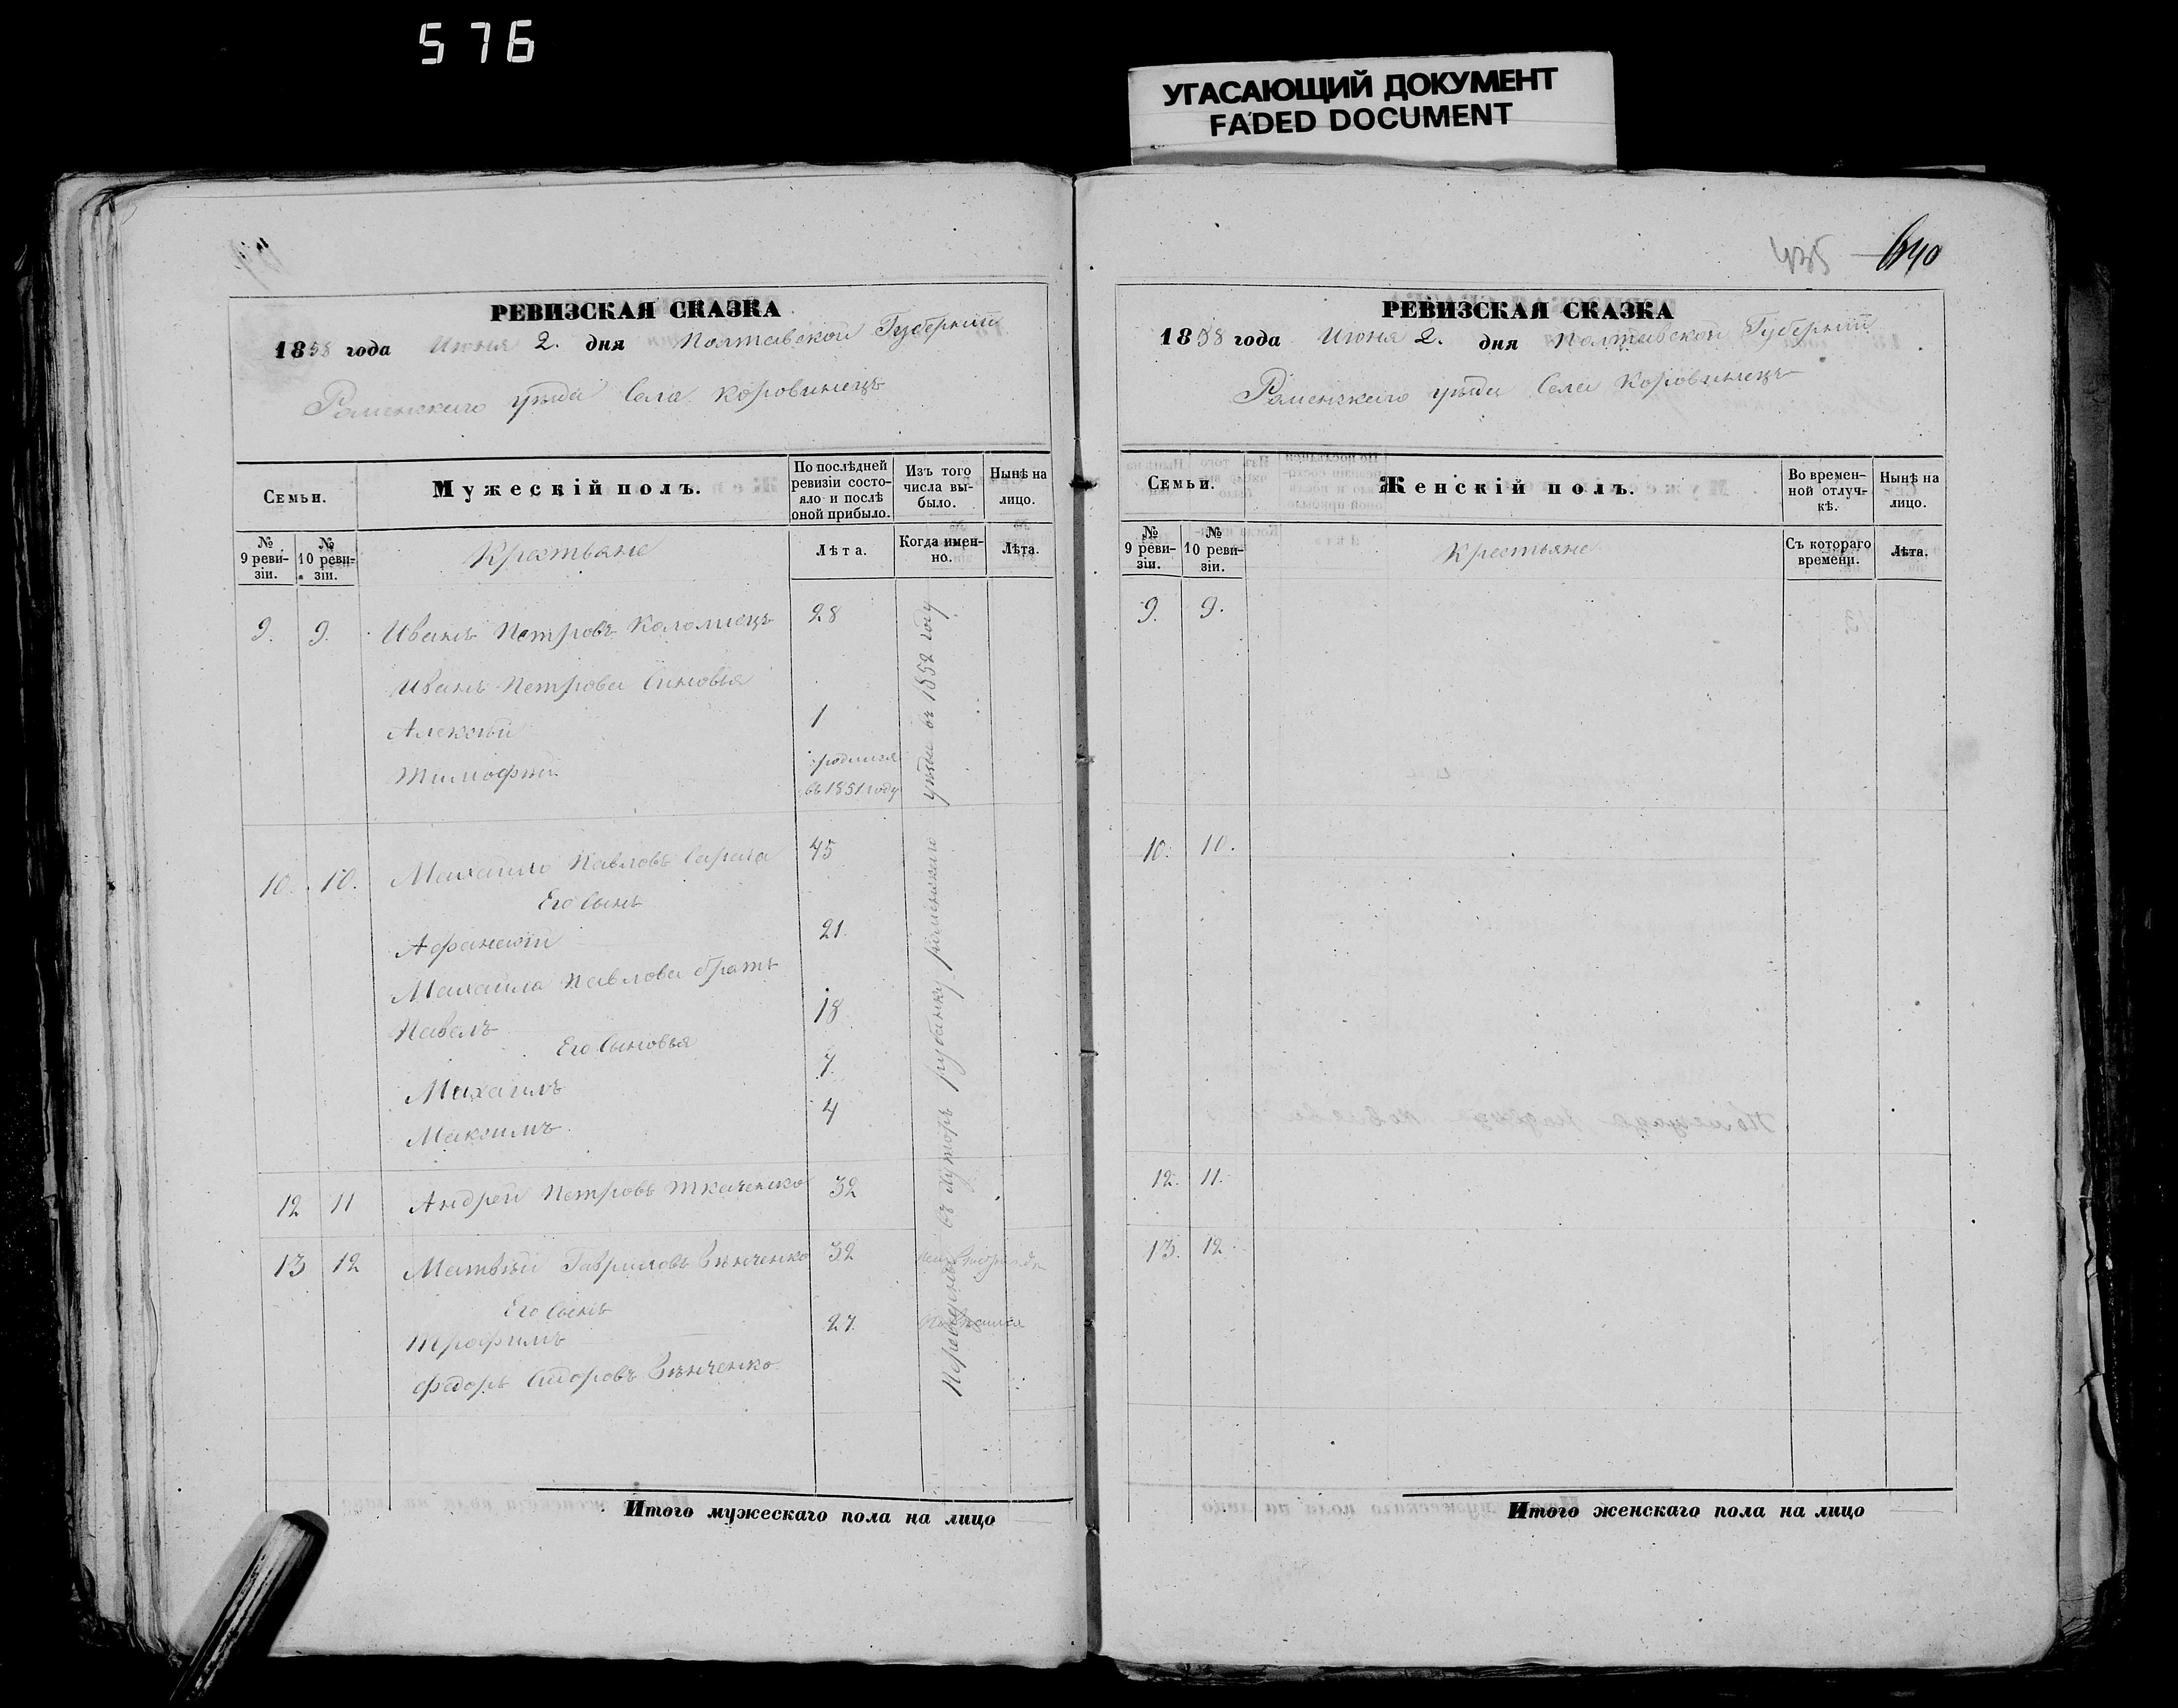 576
УГАСАЮЩИЙ ДОКУМЕНТ
FADED DOCUMENT
РЕВИЗСКАЯ СКАЗКА
1858 года Июня 2. дня Полтавской Губерніи
Роменскаго уѣзда Села Коровинецъ
Семьи.
Мужескій полъ.
По послѣдней ревизіи состояло и послѣ оной прибыло.
Изъ того числа выбыло.
Нынѣ на лицо.
№ 9 ревизіи.
№ 10 ревизіи.
Крестьяне
Лѣта.
Когда именно.
Лѣта.
9. 9. Иванъ Петровъ Коломіецъ 28
Ивана Петрова Сыновья
Алексѣй 1
Тимофѣй родился
въ 1851 году
10. 10. Михайло Павловъ 45
Его Сынъ
Афанасій 21.
Михайла Павлова братъ
Павелъ 18
Его Сыновья
Михаилъ 7.
Максимъ 4
12 11 Андрей Петровъ Ткаченко 32
13 12 Матвѣй Гавриловъ 32
Его Сынъ
Трофимъ 27.
Федоръ Сидоровъ
Переведены въ хуторъ роменскаго уѣзда въ 1852 году
435 640
РЕВИЗСКАЯ СКАЗКА
1858 года Июня 2. дня Полтавской Губерніи
Роменскаго уѣзда Села Коровинецъ
Семьи.
Женскій полъ.
Во временной отлучкѣ.
Нынѣ на лицо.
№ 9 ревизіи.
№ 10 ревизіи.
Крестьяне
Съ котораго времени.
Лѣта.
9. 9.
10. 10.
12. 11.
13. 12.
Итого мужескаго пола на лицо
Итого женскаго пола на лицо